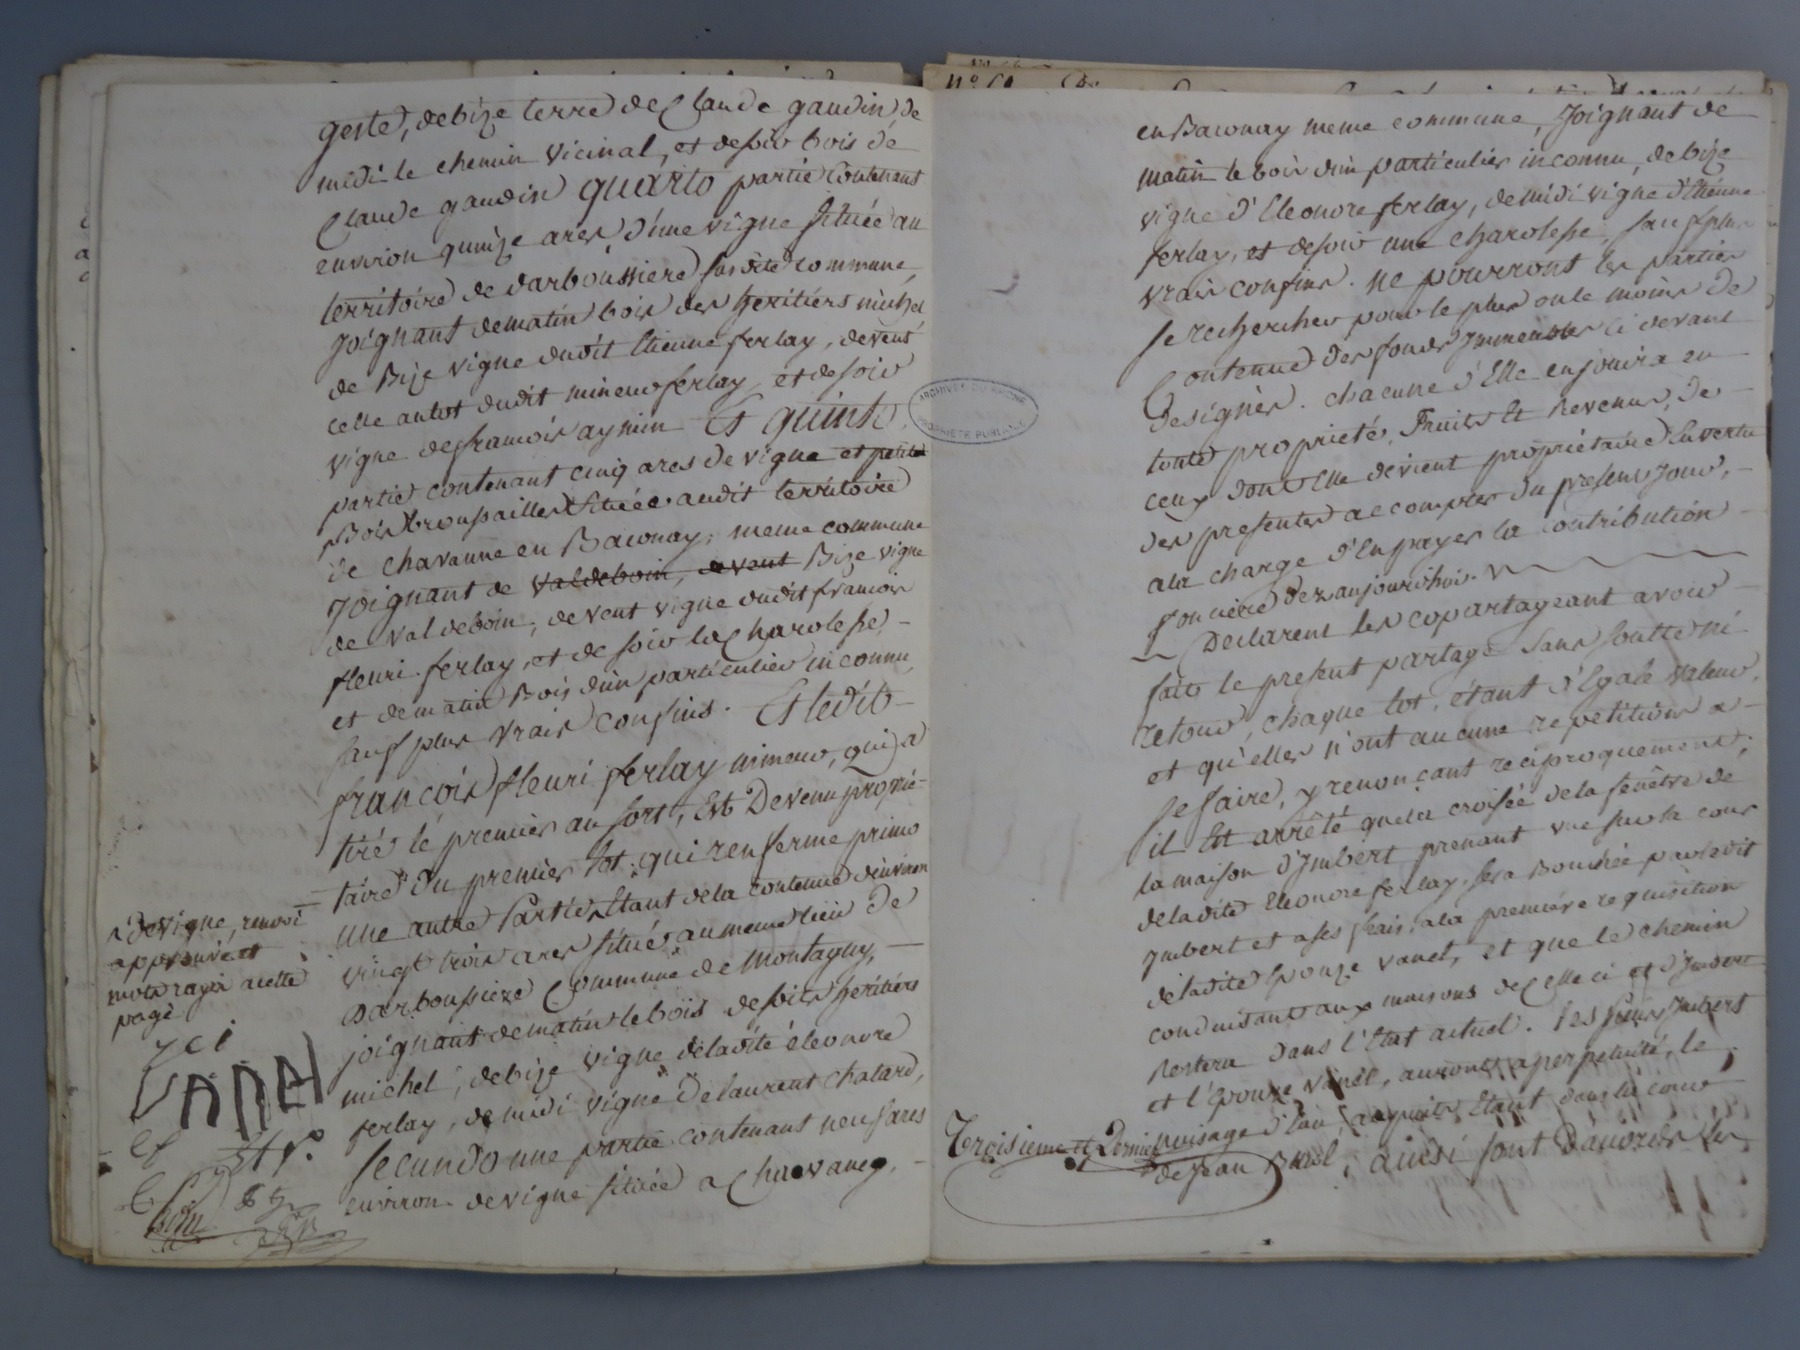 geste, debize terre de Claude gaudin, de
midi le chemin vicinal, et desoir bois de
Claude gaudin quarto partie contenant
environ quinze ares d'une vigne située au
territoire de darboussiere susdite commune,
joignant dematin bois des heritiers michel
de Bize vigne dudit Etienne ferlay, devent
celle au lot dudit mineur ferlay, et desoir
vigne defrancois aymin Et quinto,
partie contenant cinq ares de vigne et petite
Bois broussailles située audit territoire
de chavanne en Baconay, meme commune
joignant de valdeboin, devent Bize vigne
de valdeboin, devent vigne dudit francois
fleuri ferlay, et de soir la Charolesse,
et dematin Bois d'un particulier inconnu,
sauf plus vrais confins. Et ledit
francois fleuri ferlay mineur, qui a
tiré le premier au sort, Est Devenu proprié-
taire du premier lot, qui renferme primo
une autre Partie Etant dela contenue d'environ
vingt trois ares située au meme lieu de
Darboussiere Commune de Montagny,
joignant dematin le bois desdits heritiers
michel, debize vigne deladite éléonore
ferlay, de midi vigne De laurent chatard,
Secundo une partie contenant neuf ares
environ de vigne située a Chavanes,
de vigne, renvoi
approuvé et
mots rayés a cette
page
VANEL
ARCHIVES DU RHONE
PROPRIETE PUBLIQUE
en Baconay meme commune, Joignant de
matin le bois d'un particulier inconnu, debize
vigne d'Eleonore ferlay, demidi vigne d'Etienne
ferlay, et desoir une charolesse, sauf plus
vrais confins. Ne pourront les parties
se rechercher pour le plus ou le moins de
Contenue des fonds Immeubles ci devant
designés. chacune d'Elle en jouira en
toute propriété, Fruits Et Revenus, de
ceux dont Elle devient propriétaire En vertu
des presentes a compter du present jour,
ala charge d'En payer la contribution
fonciere dez aujourd'hui.
Declarent les copartageant avoir
fait le present partage sans soutte ni
retour, chaque lot, étant d'Egale valeur,
et qu'elles n'ont aucune repetition a
se faire, y renonçant reciproquement;
il Est arrêté quela croisée dela fenêtre de
la maison d'Imbert prenant vue sur la cour
deladite Eleonore ferlay, sera Bouchée par ledit
Imbert et a ses frais, ala premiere requisition
deladite Epouze vanel, et que le chemin
conduisant aux maisons de Celle ci et d'Imbert
Restera dans l'Etat actuel. les sieur Imbert
et l'Epouze vanel, auront a perpetuité, le
puisage d'Eau, au puits Etant dans la cour
de Jean, ainsi sont d'accord les
Troisieme et Dernier